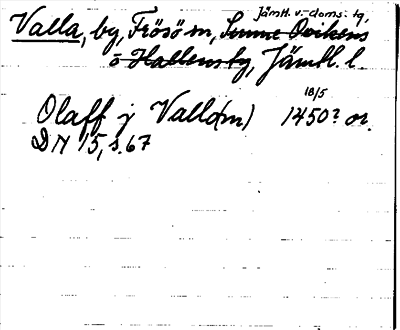 Jämtl. v. doms. tg,
Valla, by, Frösö sn, Sunne Ovikens
o Hallens tg, Jämtl. l.
18/5
Olaff j Valla(m) 1450? or.
DN 15, s. 67